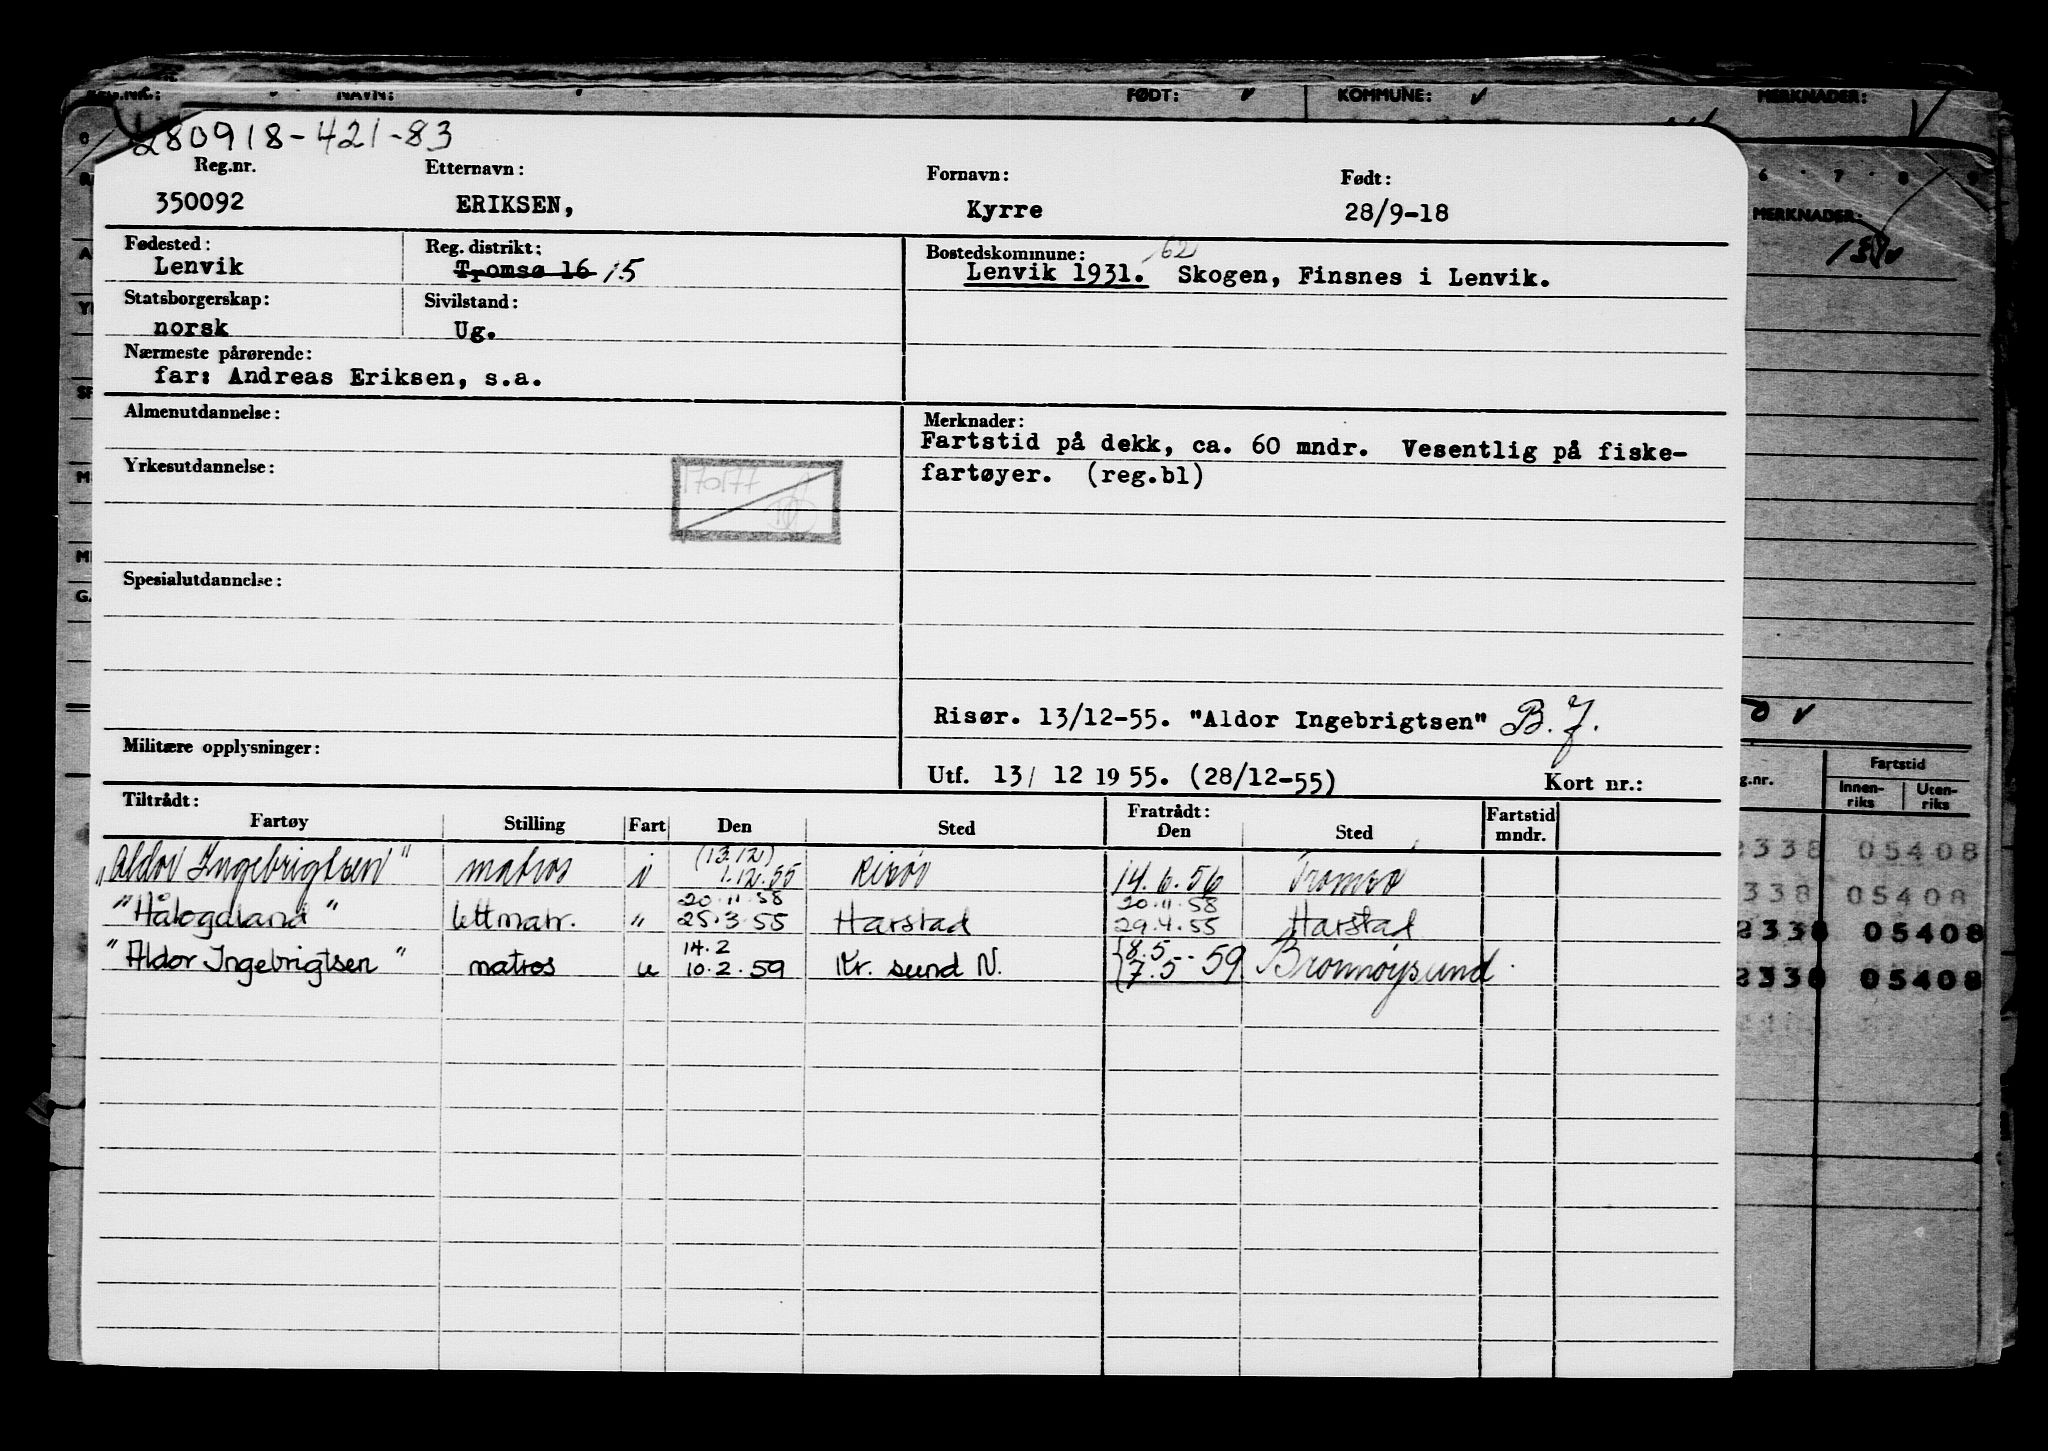 REG.NR.: NAVN: FØDT: KOMMUNE: MERKNADER:
280918-421-83
Reg.nr. Etternavn: Fornavn: Født:
350092 ERIKSEN, Kyrre 28/9-18
6 7 8 9
MERKNADER:
Fødested: Reg. distrikt: Bostedskommune: 62
Lenvik Tromsø 16 15 Lenvik 1931. Skogen, Finsnes i Lenvik.
Statsborgerskap: Sivilstand:
norsk Ug.
Nærmeste pårørende:
far: Andreas Eriksen, s.a.
Almenutdannelse: Merknader:
Fartstid på dekk, ca. 60 mndr. Vesentlig på fiske-
Yrkesutdannelse: fartøyer. (reg.bl)
170177
Spesialutdannelse:
Risør. 13/12-55. "Aldor Ingebrigtsen" B.J.
Militære opplysninger:
Utf. 13/ 12 1955. (28/12-55) Kort nr.:
g.nr. Fartstid
Innen-riks Uten-riks
Tiltrådt: Fratrådt:
Fartøy Stilling Fart Den Sted Den Sted Fartstid mndr.
(13.12)
"Aldor Ingebrigtsen" matros i 1.12.55 Risør 14.6.56 Tromsø
2338 05408
20.11.58 20.11.58
"Hålogaland" lettmatr. " 25.3.55 Harstad 29.4.55 Harstad
338 05408
2338 05408
14.2 8.5
"Aldor Ingebrigtsen" matros u 10.2.59 Kr. sund N. 7.5-59 Brønnøysund
2338 05408